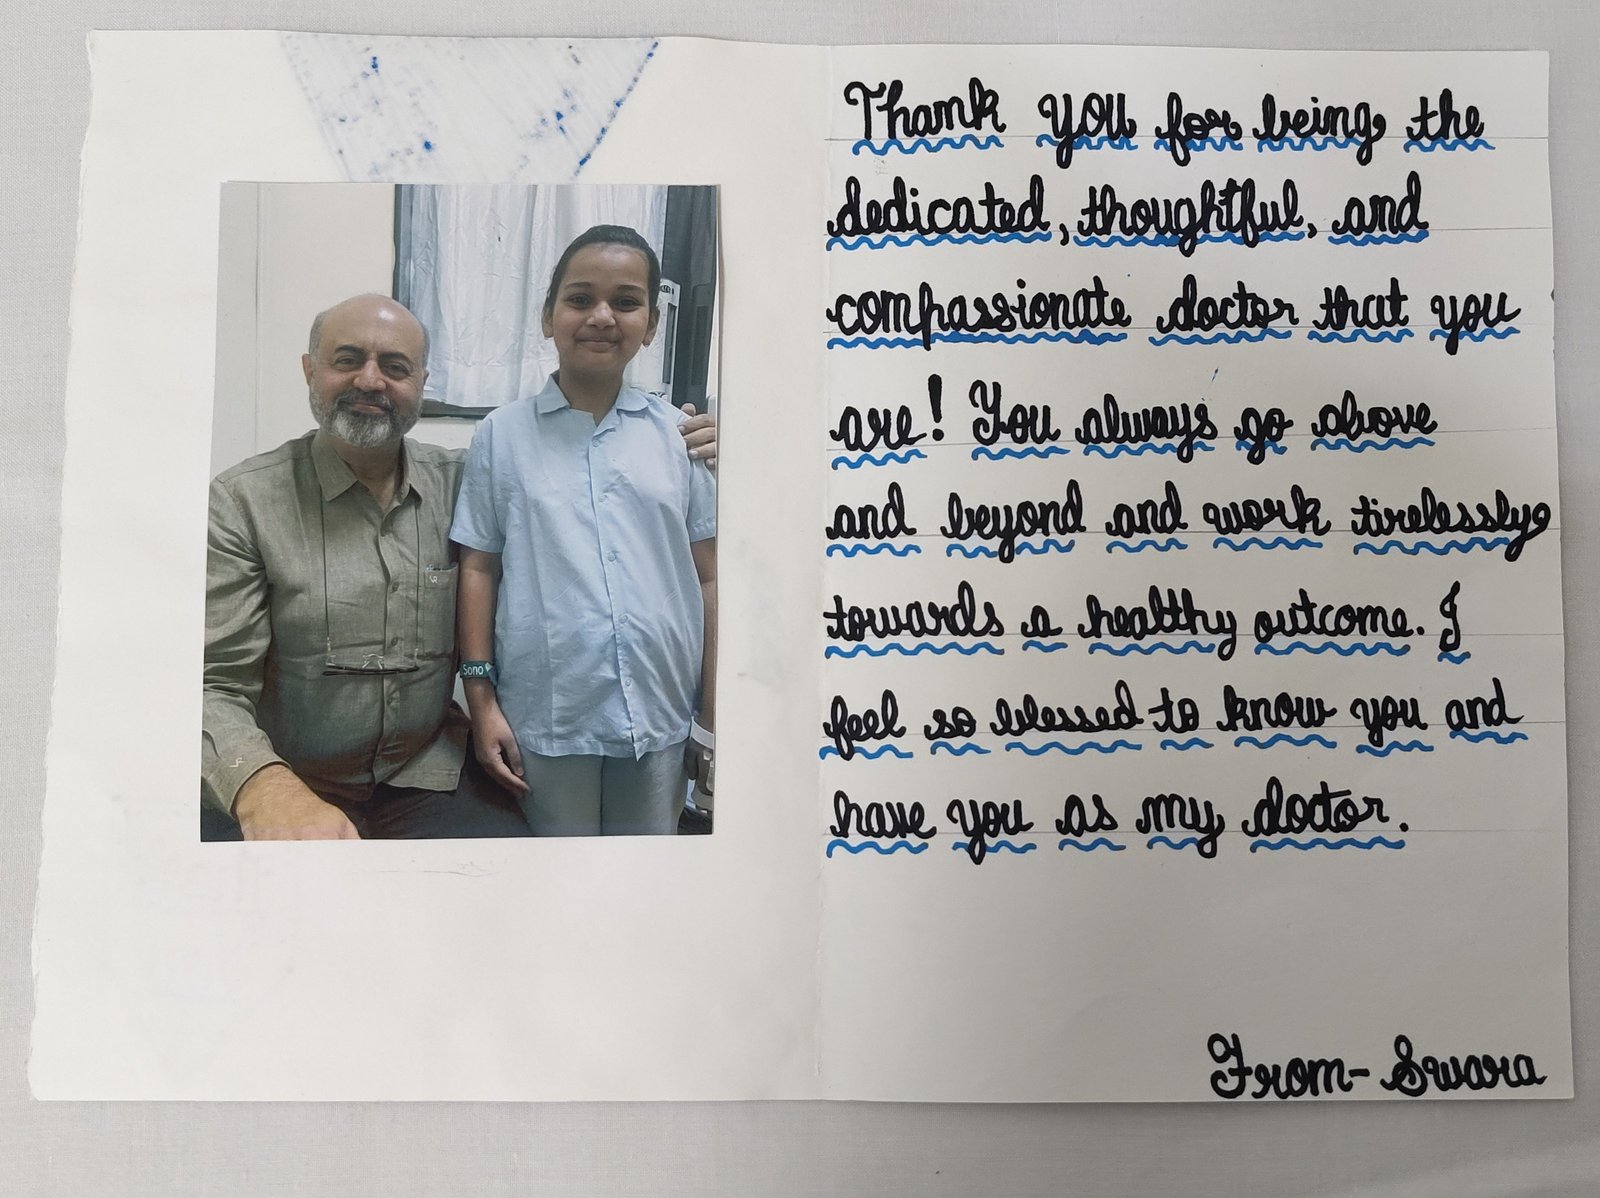 Thank you for being the
dedicated, thoughtful, and
compassionate doctor that you
are! You always go above
and beyond and work tirelessly
towards a healthy outcome. I
feel so blessed to know you and
have you as my doctor.
From- Swara
Sono